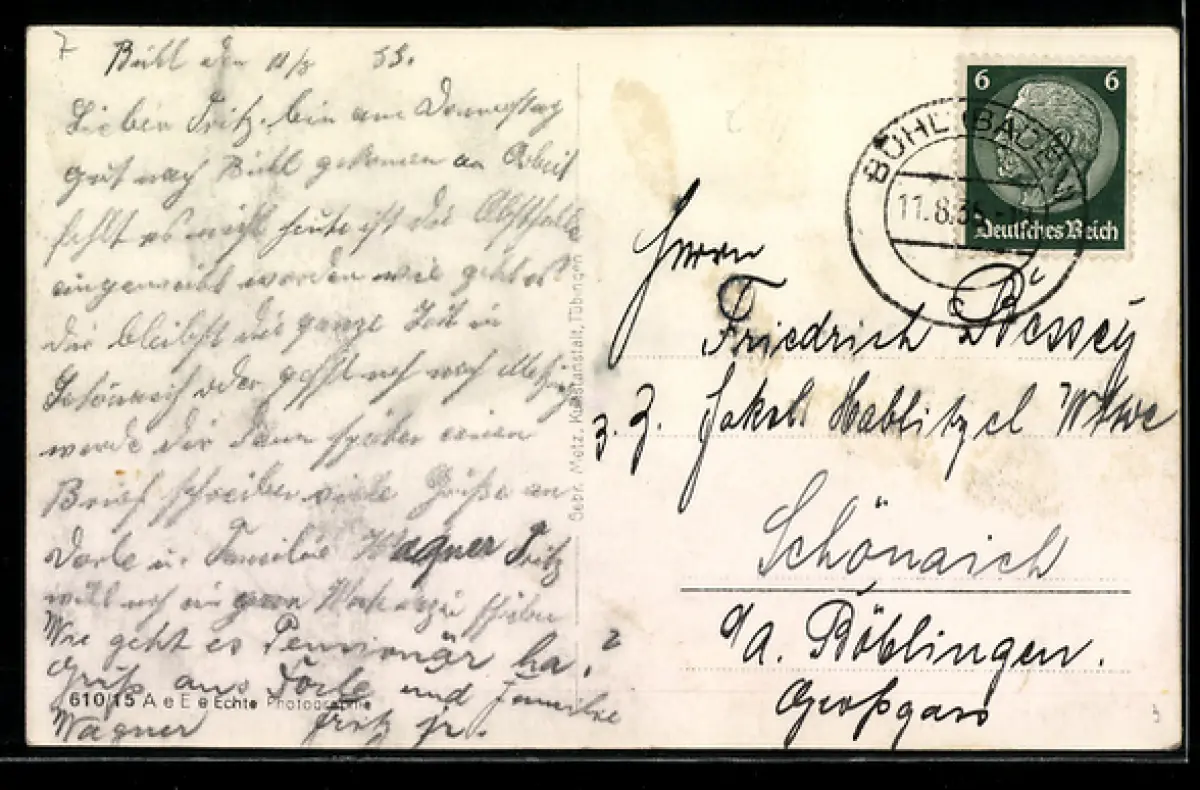 7
Bühl den 11/8 35.
Lieber Fritz. bin am Donnerstag
gut nach Bühl gekomen an Arbeit
fehlt es nicht heute ist die
eingeweiht worden wie geht es?
Du bleibst die ganze Zeit in
Schönaich oder gehst noch nach
werde dir dann später einen
Brief schreiben viele Grüße an
Dorle u. Familie Wagner Fritz
will noch ein
Wie geht es Pensionär ha.?
Gruß aus Dorle und Familie
Wagner Fritz jr.
610/15 A e E e Echte Photographie
Gebr. Metz, Kunstanstalt, Tübingen
6 6
Deutsches Reich
BÜHL (BADEN)
11.8.35
Herrn
Friedrich Bessey
z. Z. Jakob Hablitzel Wtwe
Schönaich
O/A. Böblingen.